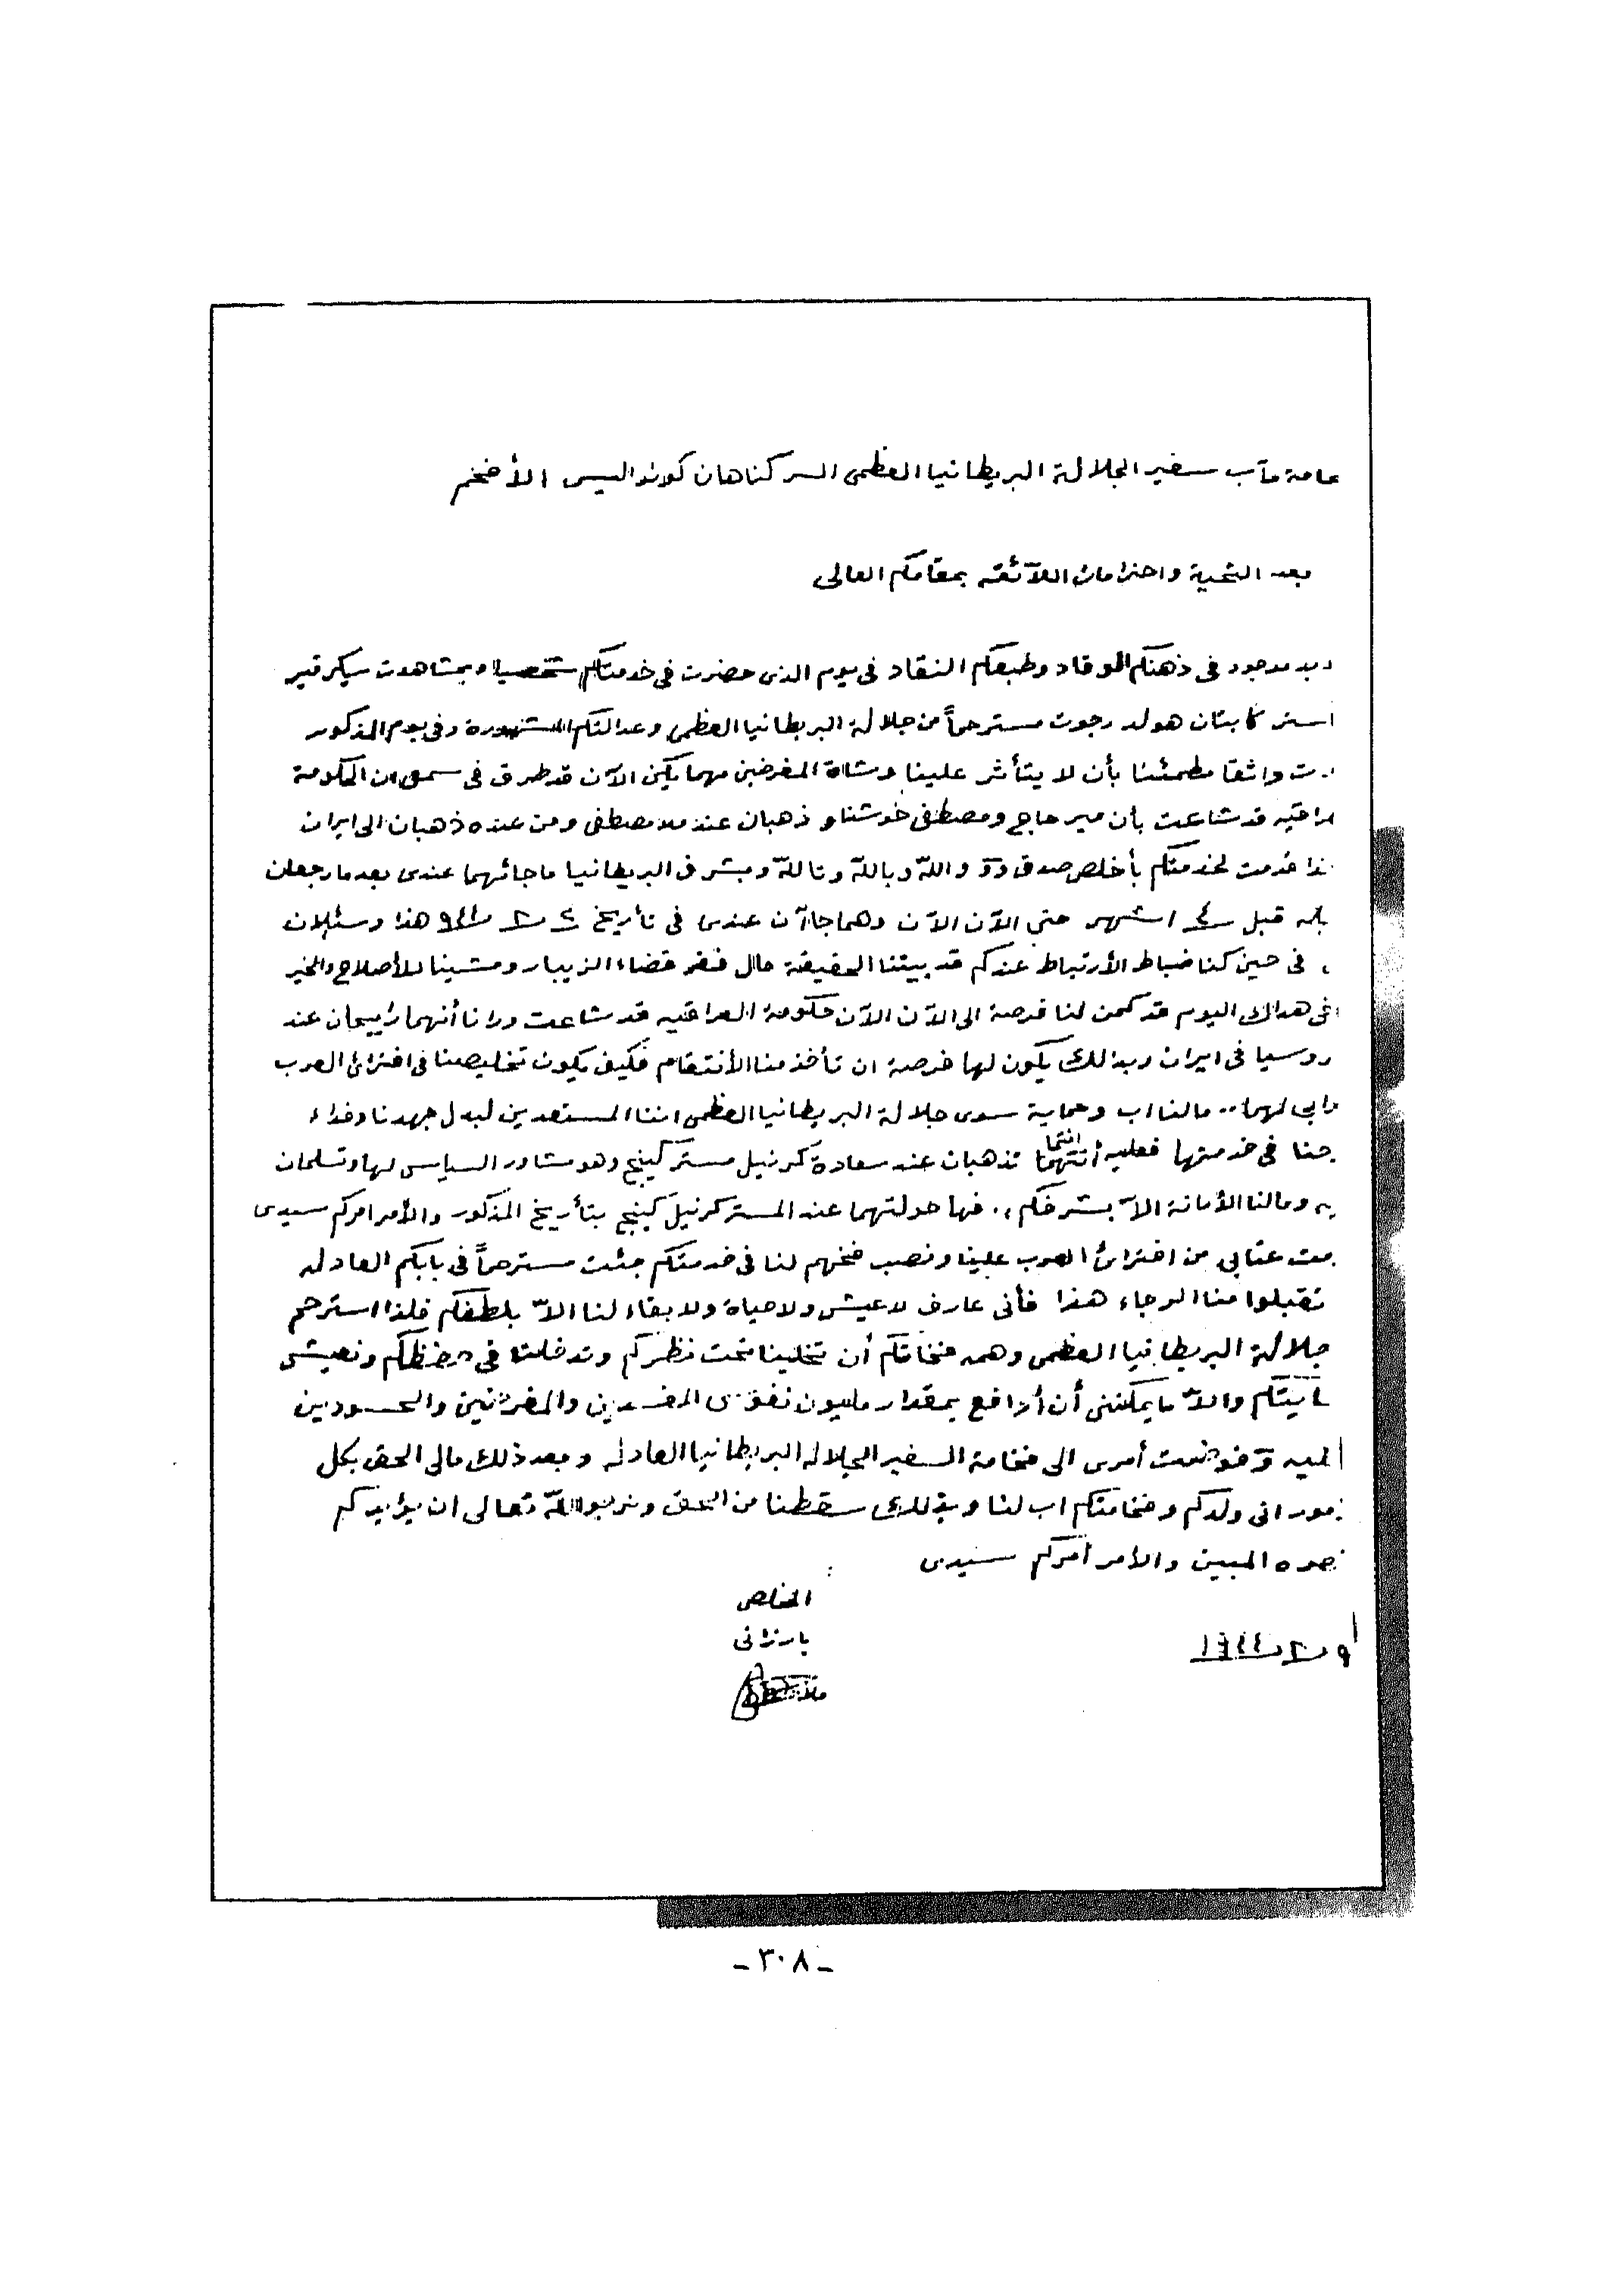 مآب سفير الجلالة البريطانيا العظمى السر كناهان كورنواليس الأفخم
بعد التحية واحترامات اللآئقه بمقامكم العالى
موجود فى ذهنكم الوقاد وطبعكم النقاد فى يوم الذى حضرت فى خدمتكم شخصيا وبمشاهدت سيكرتير
كابتان هولد رجوت مسترحماً من جلالة البريطانيا العظمى وعدالتكم المشهورة وفى يوم المذكور
واثقا مطمئنا بأن لا يتأثر علينا وشاة المغرضين مهما يكن الآن قد طرق فى سمعى ان الحكومة
قد شاعت بأن مير حاج ومصطفى خوشناو ذهبان عند ملا مصطفى ومن عنده ذهبان الى ايران
خدمت لخدمتكم بأخلص صدق والله وبالله وتالله وبشرف البريطانيا ما جائهما عندى بعد ما رجعان
قبل اشهر حتى الآن الآن وهما جاآن عندى فى تأريخ هذا وسئلان
فى حين كنا ضباط الأرتباط عندكم قد بيتنا الحقيقة حال فقر قضاء الزيبار ومشينا للأصلاح والخير
اليوم قد كمن لنا فرصة الى الآن الآن حكومة العراقيه قد شاعت ورانا أنهما رأيحان عند
روسيا فى ايران وبذالك يكون لها فرصة ان تأخذ منا الأنتقام فكيف يكون تخليصنا فى افترائ العرب
لهما.. مالنا اب وحماية سوى جلالة البريطانيا العظمى اننا المستعدين لبدل جهدنا وفداء
فى خدمتها فعليه أنتما تذهبان عند سعادة كرنيل مستر كينج وهو مشاور السياسى لها وتسلمان
ومالنا الأمانة الاّ بشرفكم.. فها حولتهما عند المستر كرنيل كينج بتأريخ المذكور والأمر امركم سيدى
عتابى من افترائ العرب علينا ونصب فخهم لنا فى خدمتكم جئت مسترحماً فى بابكم العادله
تقبلوا منا الرجاء هذا فأنى عارف لا عيش ولا حياة ولا بقاء لنا الاّ بلطفكم فلذا استرحم
جلالة البريطانيا العظمى وهمه فخامتكم أن تخلينا تحت نظركم وتدخلنا فى حفظكم ونعيش
والاّ ما يمكننى أن أدافع بمقدار مليون نفوس المفسدين والمغرضين والحسودين
فوضت أمرى الى فخامة السفير الجلاله البريطانيا العادله وبعد ذلك مالى الحق بكل
انى ولدكم وفخامتكم اب لنا وبذلك سقطنا من الحق ونرجو الله تعالى ان يؤيدكم
المبين والأمر أمركم سيدى
المخلص
بارزانى
١٩٤٤
ـ ٣٠٨ ـ